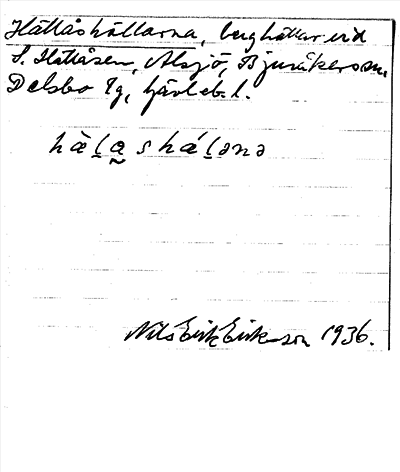 Hållåshällarna, berghällar vid
S. Hållåsen, Alsjö, Bjuråkers sn,
Delsbo tg, Gävlebs l.
Nils Erik Eriksson 1936.